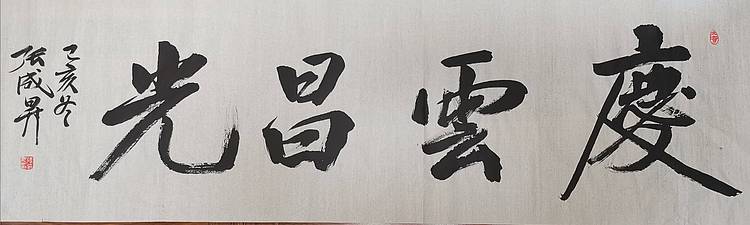 慶雲昌光
己亥冬
張成昇